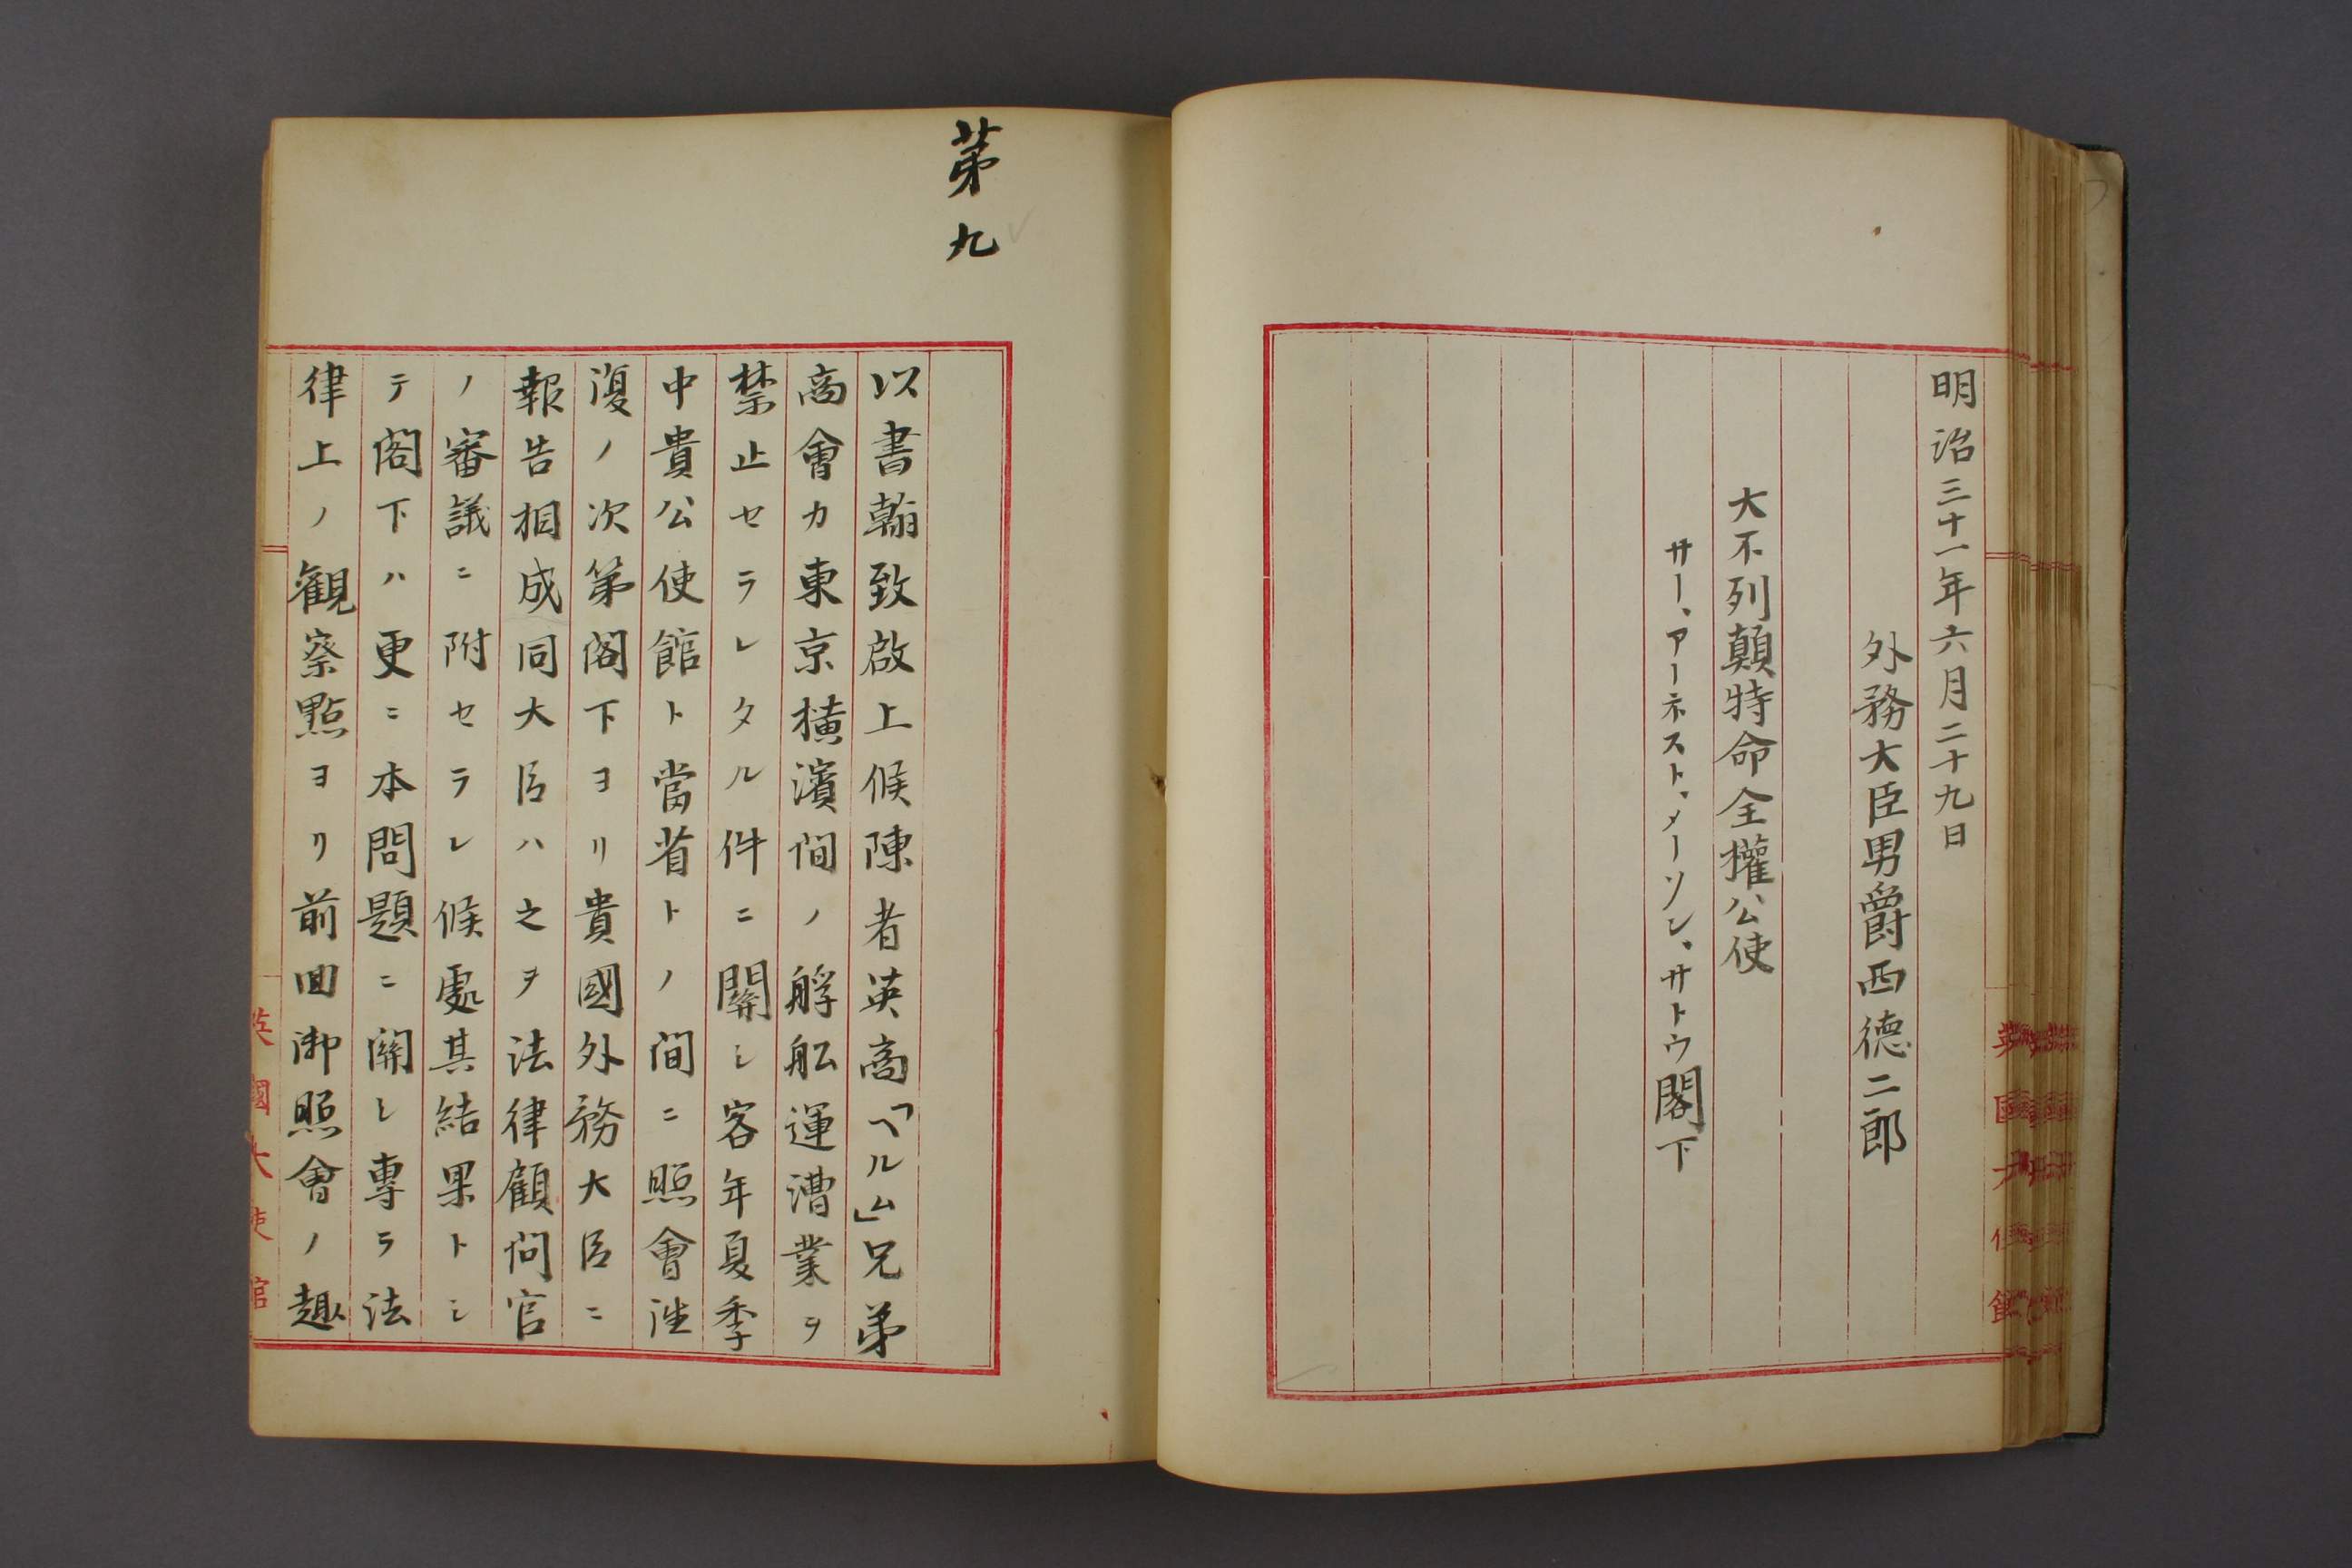 明治三十一年六月二十九日
外務大臣男爵西德二郎
大不列顛特命全權公使
サー、アーネスト、メーソン、サトウ閣下
第九
以書翰致啟上候陳者英商「ヘルム」兄弟
商會カ東京橫濱間ノ艀舩運漕業ヲ
禁止セラレタル件ニ關シ客年夏季
中貴公使館ト當省トノ間ニ照會往
復ノ次第閣下ヨリ貴國外務大臣ニ
報告相成同大臣ハ之ヲ法律顧問官
ノ審議ニ附セラレ候處其結果トシ
テ閣下ハ更ニ本問題ニ關シ專ラ法
律上ノ觀察點ヨリ前回御照會ノ趣
英國大使館